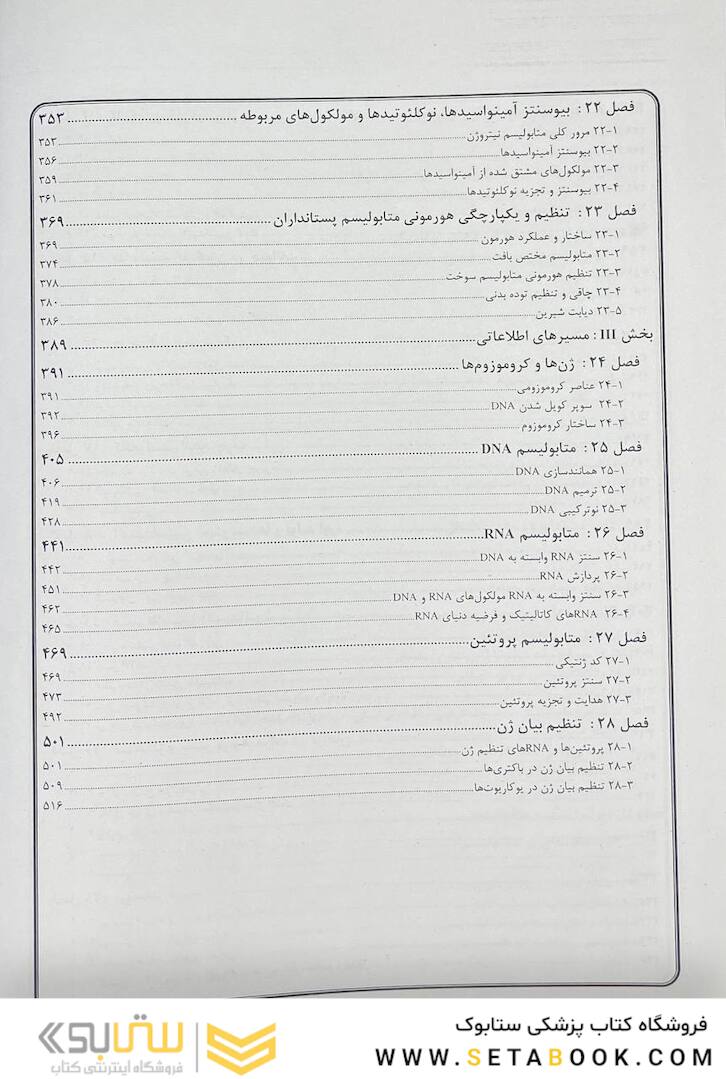 فصل ۲۲: بیوسنتز آمینواسیدها، نوکلئوتیدها و مولکول‌های مربوطه ۳۵۳
۲۲-۱ مرور کلی متابولیسم نیتروژن ۳۵۳
۲۲-۲ بیوسنتز آمینواسیدها ۳۵۶
۲۲-۳ مولکول‌های مشتق شده از آمینواسیدها ۳۵۹
۲۲-۴ بیوسنتز و تجزیه نوکلئوتیدها ۳۶۱
فصل ۲۳: تنظیم و یکپارچگی هورمونی متابولیسم پستانداران ۳۶۹
۲۳-۱ ساختار و عملکرد هورمون ۳۶۹
۲۳-۲ متابولیسم مختص بافت ۳۷۴
۲۳-۳ تنظیم هورمونی متابولیسم سوخت ۳۷۸
۲۳-۴ چاقی و تنظیم توده بدنی ۳۸۰
۲۳-۵ دیابت شیرین ۳۸۶
بخش III: مسیرهای اطلاعاتی ۳۸۹
فصل ۲۴: ژن‌ها و کروموزوم‌ها ۳۹۱
۲۴-۱ عناصر کروموزومی ۳۹۱
۲۴-۲ سوپر کویل شدن DNA ۳۹۲
۲۴-۳ ساختار کروموزوم ۳۹۶
فصل ۲۵: متابولیسم DNA ۴۰۵
۲۵-۱ همانندسازی DNA ۴۰۶
۲۵-۲ ترمیم DNA ۴۱۹
۲۵-۳ نوترکیبی DNA ۴۲۸
فصل ۲۶: متابولیسم RNA ۴۴۱
۲۶-۱ سنتز RNA وابسته به DNA ۴۴۲
۲۶-۲ پردازش RNA ۴۵۱
۲۶-۳ سنتز وابسته به RNA مولکول‌های RNA و DNA ۴۶۲
۲۶-۴ RNAهای کاتالیتیک و فرضیه دنیای RNA ۴۶۵
فصل ۲۷: متابولیسم پروتئین ۴۶۹
۲۷-۱ کد ژنتیکی ۴۶۹
۲۷-۲ سنتز پروتئین ۴۷۳
۲۷-۳ هدایت و تجزیه پروتئین ۴۹۲
فصل ۲۸: تنظیم بیان ژن ۵۰۱
۲۸-۱ پروتئین‌ها و RNAهای تنظیم ژن ۵۰۱
۲۸-۲ تنظیم بیان ژن در باکتری‌ها ۵۰۹
۲۸-۳ تنظیم بیان ژن در یوکاریوت‌ها ۵۱۶
فروشگاه کتاب پزشکی ستابوک
WWW.SETABOOK.COM
ستابوک
فروشگاه اینترنتی کتاب